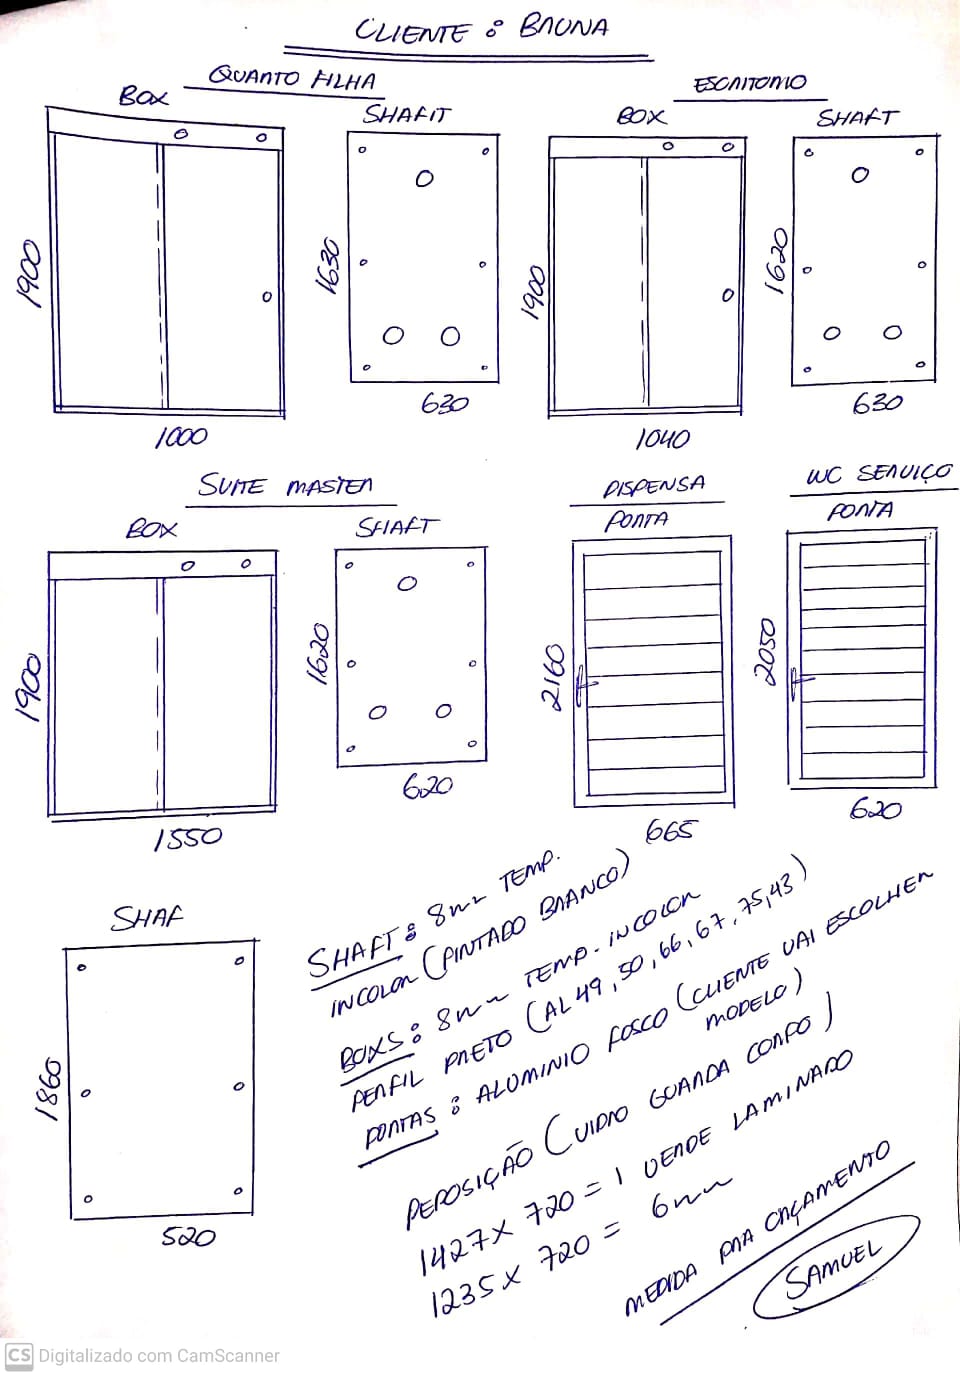 CLIENTE : BRUNA
QUARTO FILHA
ESCRITORIO
BOX
SHAFIT
BOX
SHAFT
1900
1630
1900
1620
1000
630
1040
630
SUITE MASTER
DISPENSA
WC SERVIÇO
BOX
SHAFT
PORTA
PORTA
1900
1620
2160
2050
1550
620
665
620
SHAF
1860
520
SHAFT : 8mm TEMP.
INCOLOR (PINTADO BRANCO)
BOXS : 8mm TEMP. INCOLOR
PERFIL PRETO (AL 49, 50, 66, 67, 75, 43)
PORTAS : ALUMINIO FOSCO (CLIENTE VAI ESCOLHER
MODELO)
REPOSIÇÃO (VIDRO GUARDA CORPO)
1427 X 720 = 1 VERDE LAMINADO
1235 X 720 = 6mm
MEDIDA PRA ORÇAMENTO
SAMUEL
CS Digitalizado com CamScanner